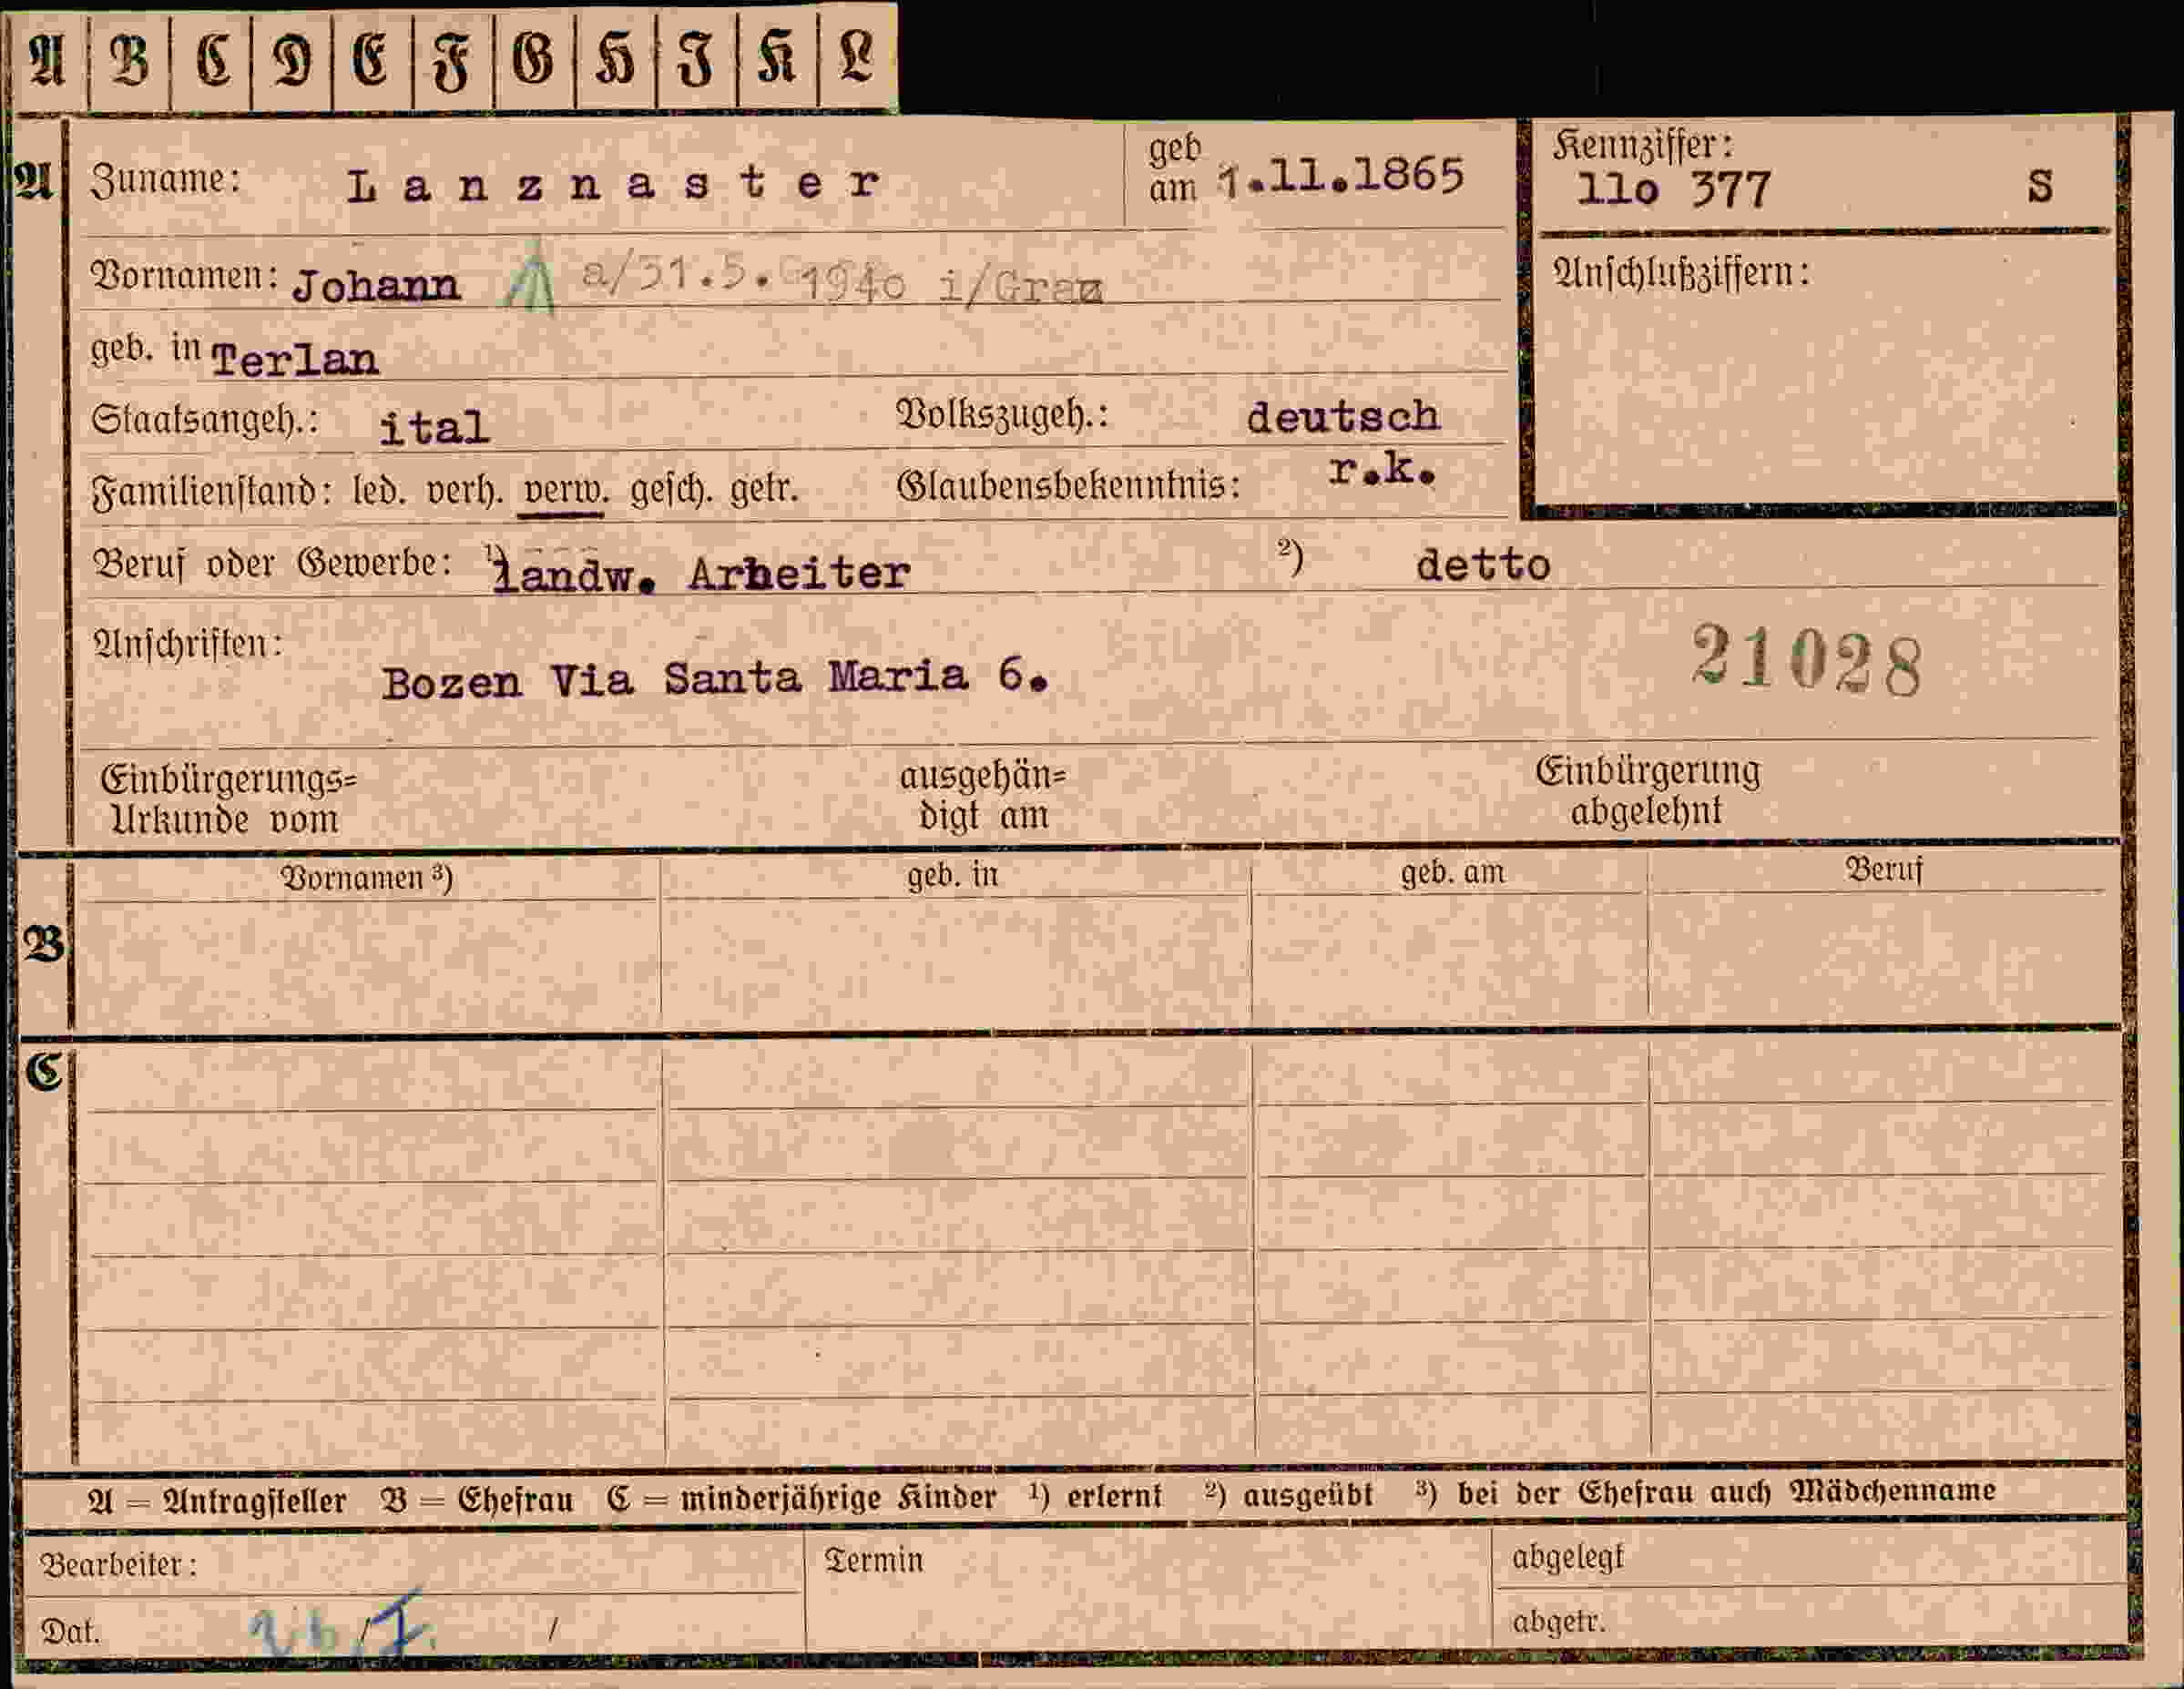 A B C D E F G H I K L
A Zuname: Lanznaster geb am 1.11.1865 Kennziffer: 11o 377 S
Vornamen: Johann a/31.5. 1940 i/Graz Anschlußziffern:
geb. in Terlan
Staatsangeh.: ital Volkszugeh.: deutsch
Familienstand: led. verh. verw. gesch. getr. Glaubensbekenntnis: r.k.
Beruf oder Gewerbe: 1) landw. Arbeiter 2) detto
Anschriften: Bozen Via Santa Maria 6. 21028
Einbürgerungs= ausgehän= Einbürgerung
Urkunde vom digt am abgelehnt
Vornamen 3) geb. in geb. am Beruf
B
C
A = Antragsteller B = Ehefrau C = minderjährige Kinder 1) erlernt 2) ausgeübt 3) bei der Ehefrau auch Mädchenname
Bearbeiter: Termin abgelegt
Dat. 26./I. / abgetr.